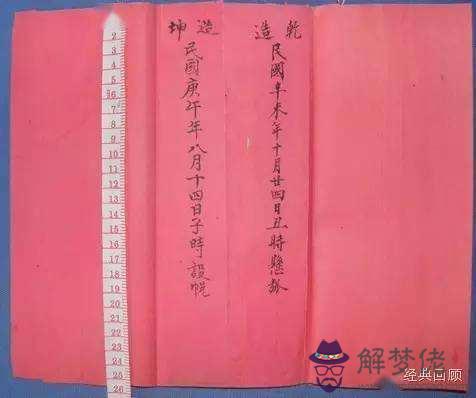 乾造
民國辛未年十月廿四日丑時懸弧
坤造
民國庚午年八月十四日子時設帨
2
3
4
5
6
7
8
9
10
11
12
13
14
15
16
17
18
19
20
21
22
23
24
25
26
解梦佬
经典回顾